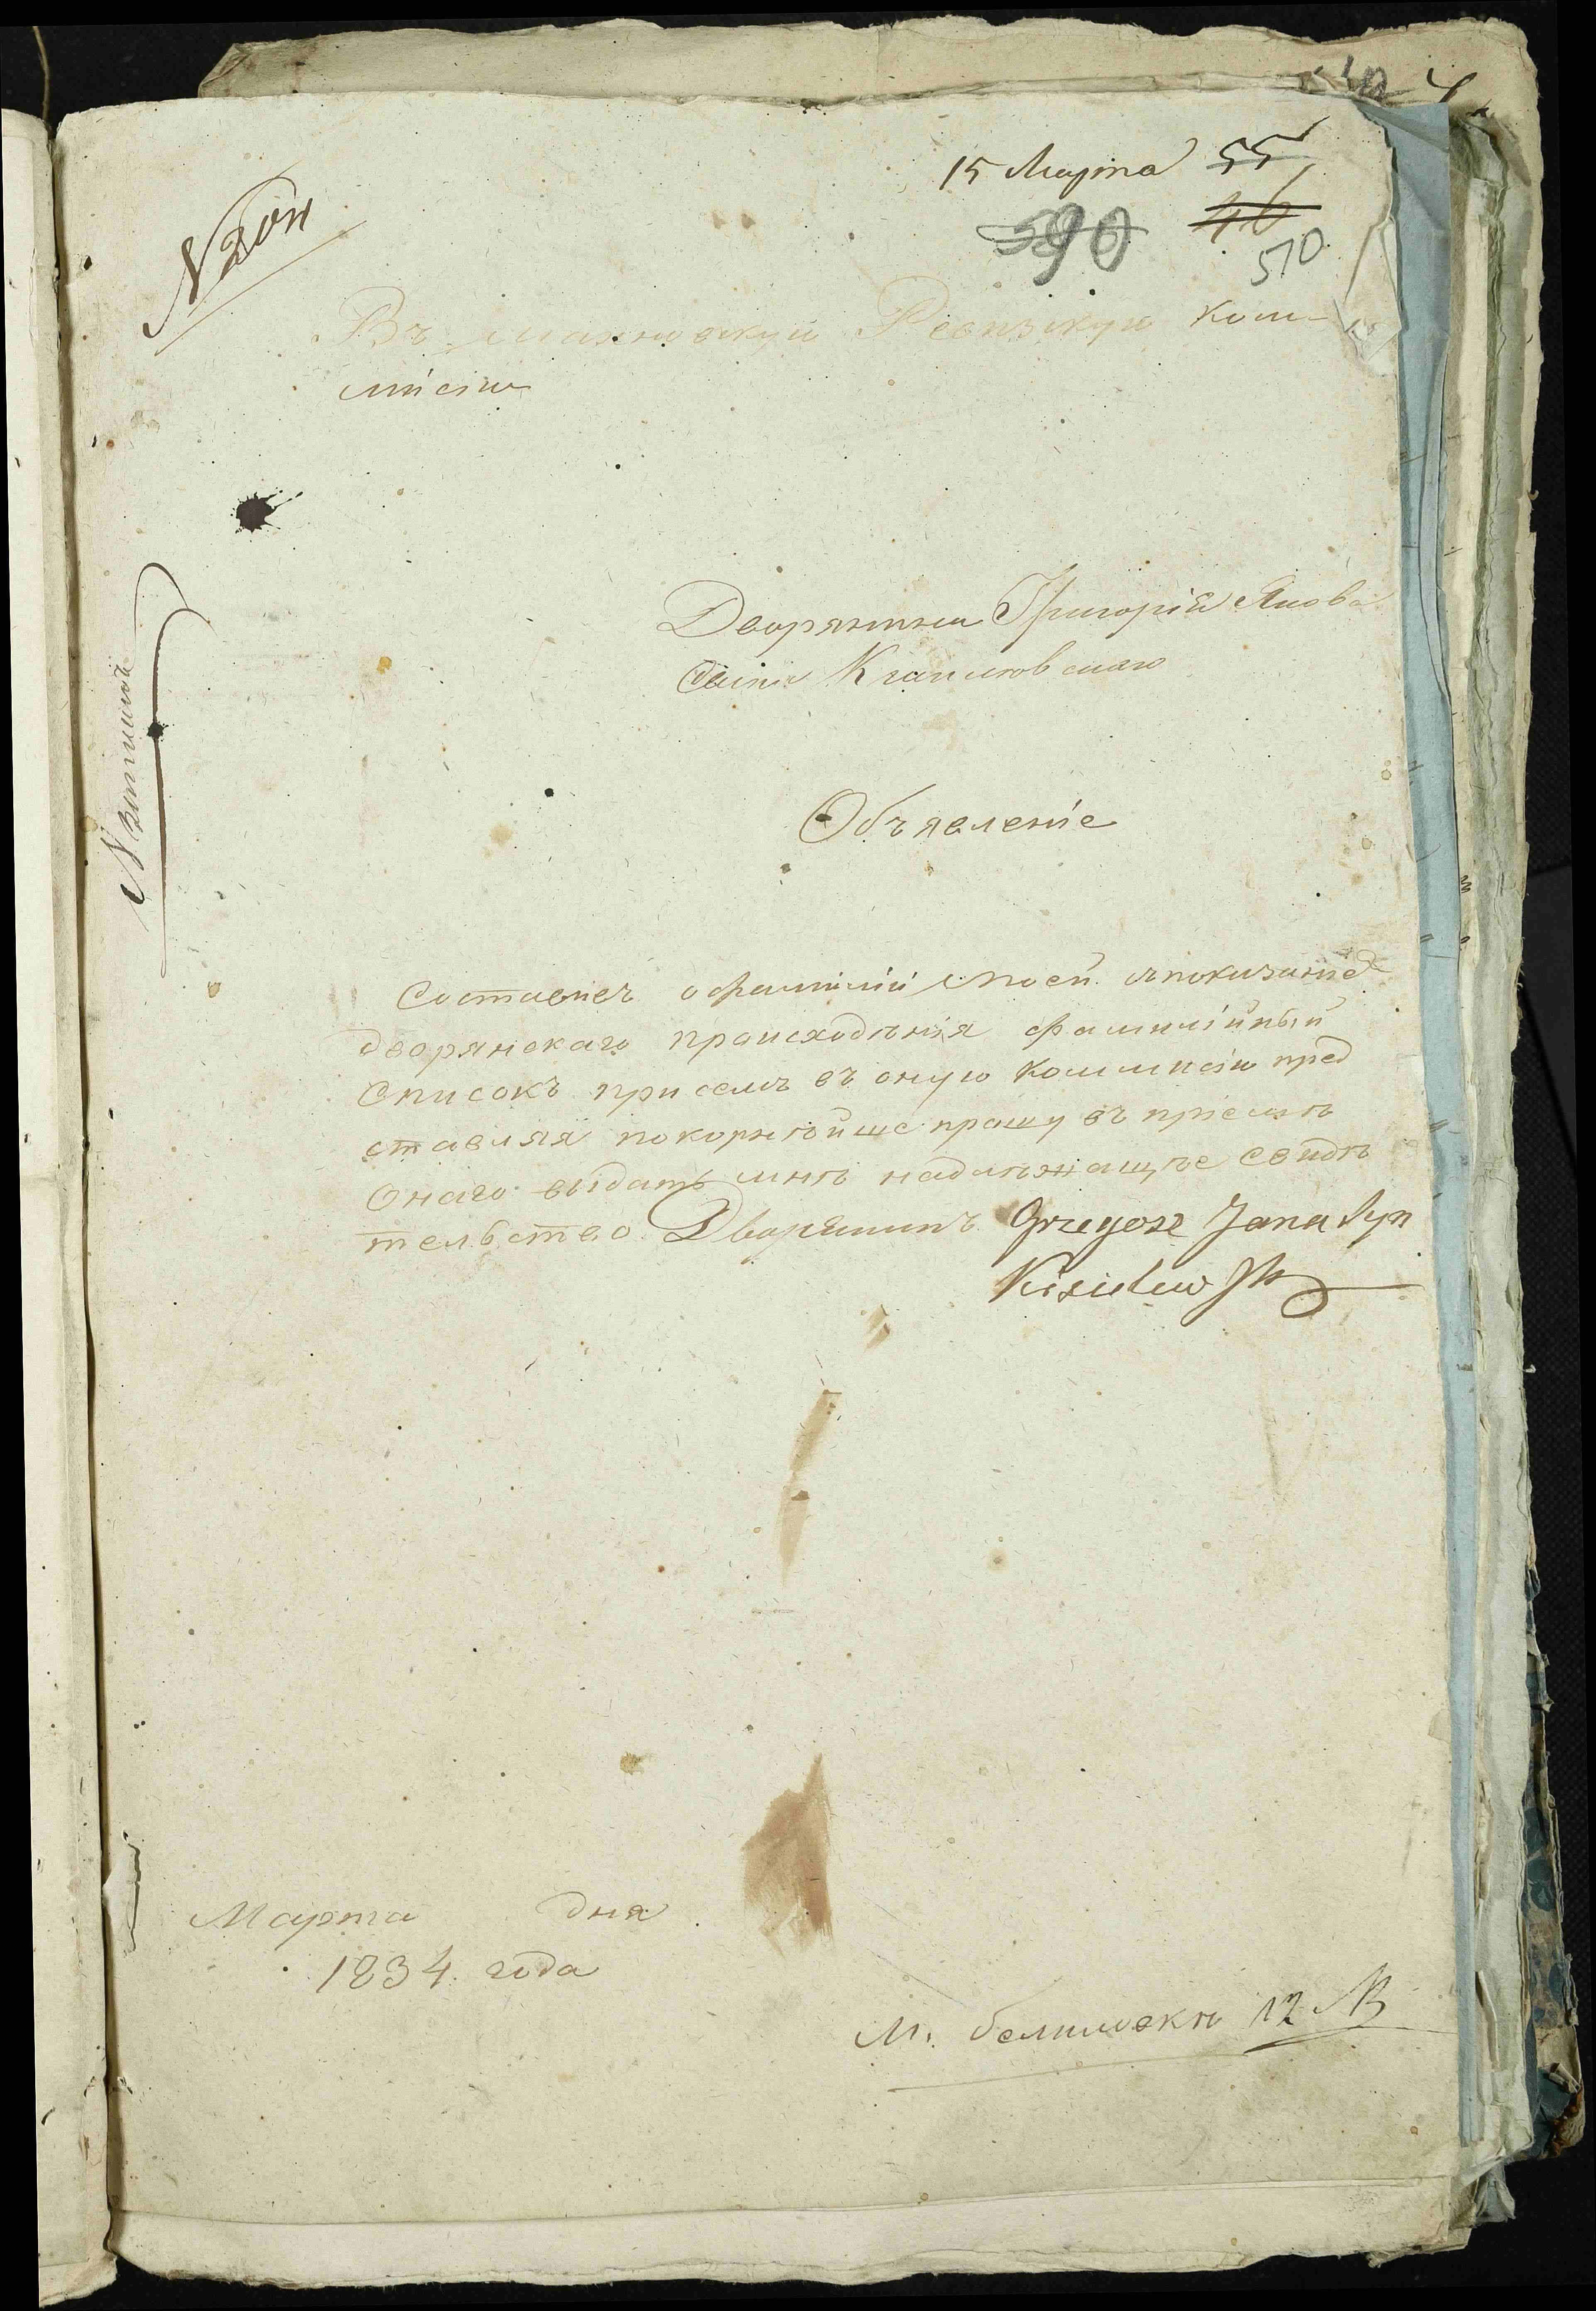 15 Марта 55
46
590
510
Въ Махновскую Ревизскую ком-
мисію
Дворянина Григорія Якова
Сына
Объявленіе
Составивъ о фамиліи моей
дворянскаго происходенія фамилійный
Списокъ при семъ въ оную Коммисію пред
ставляя покорнѣйше прошу въ пріемѣ
Онаго выдать мнѣ надлежащѣе свидѣ
тельство Дворянинъ Grzegorz Jana Syn
Kisielewski
Марта дня
1834 года
М.